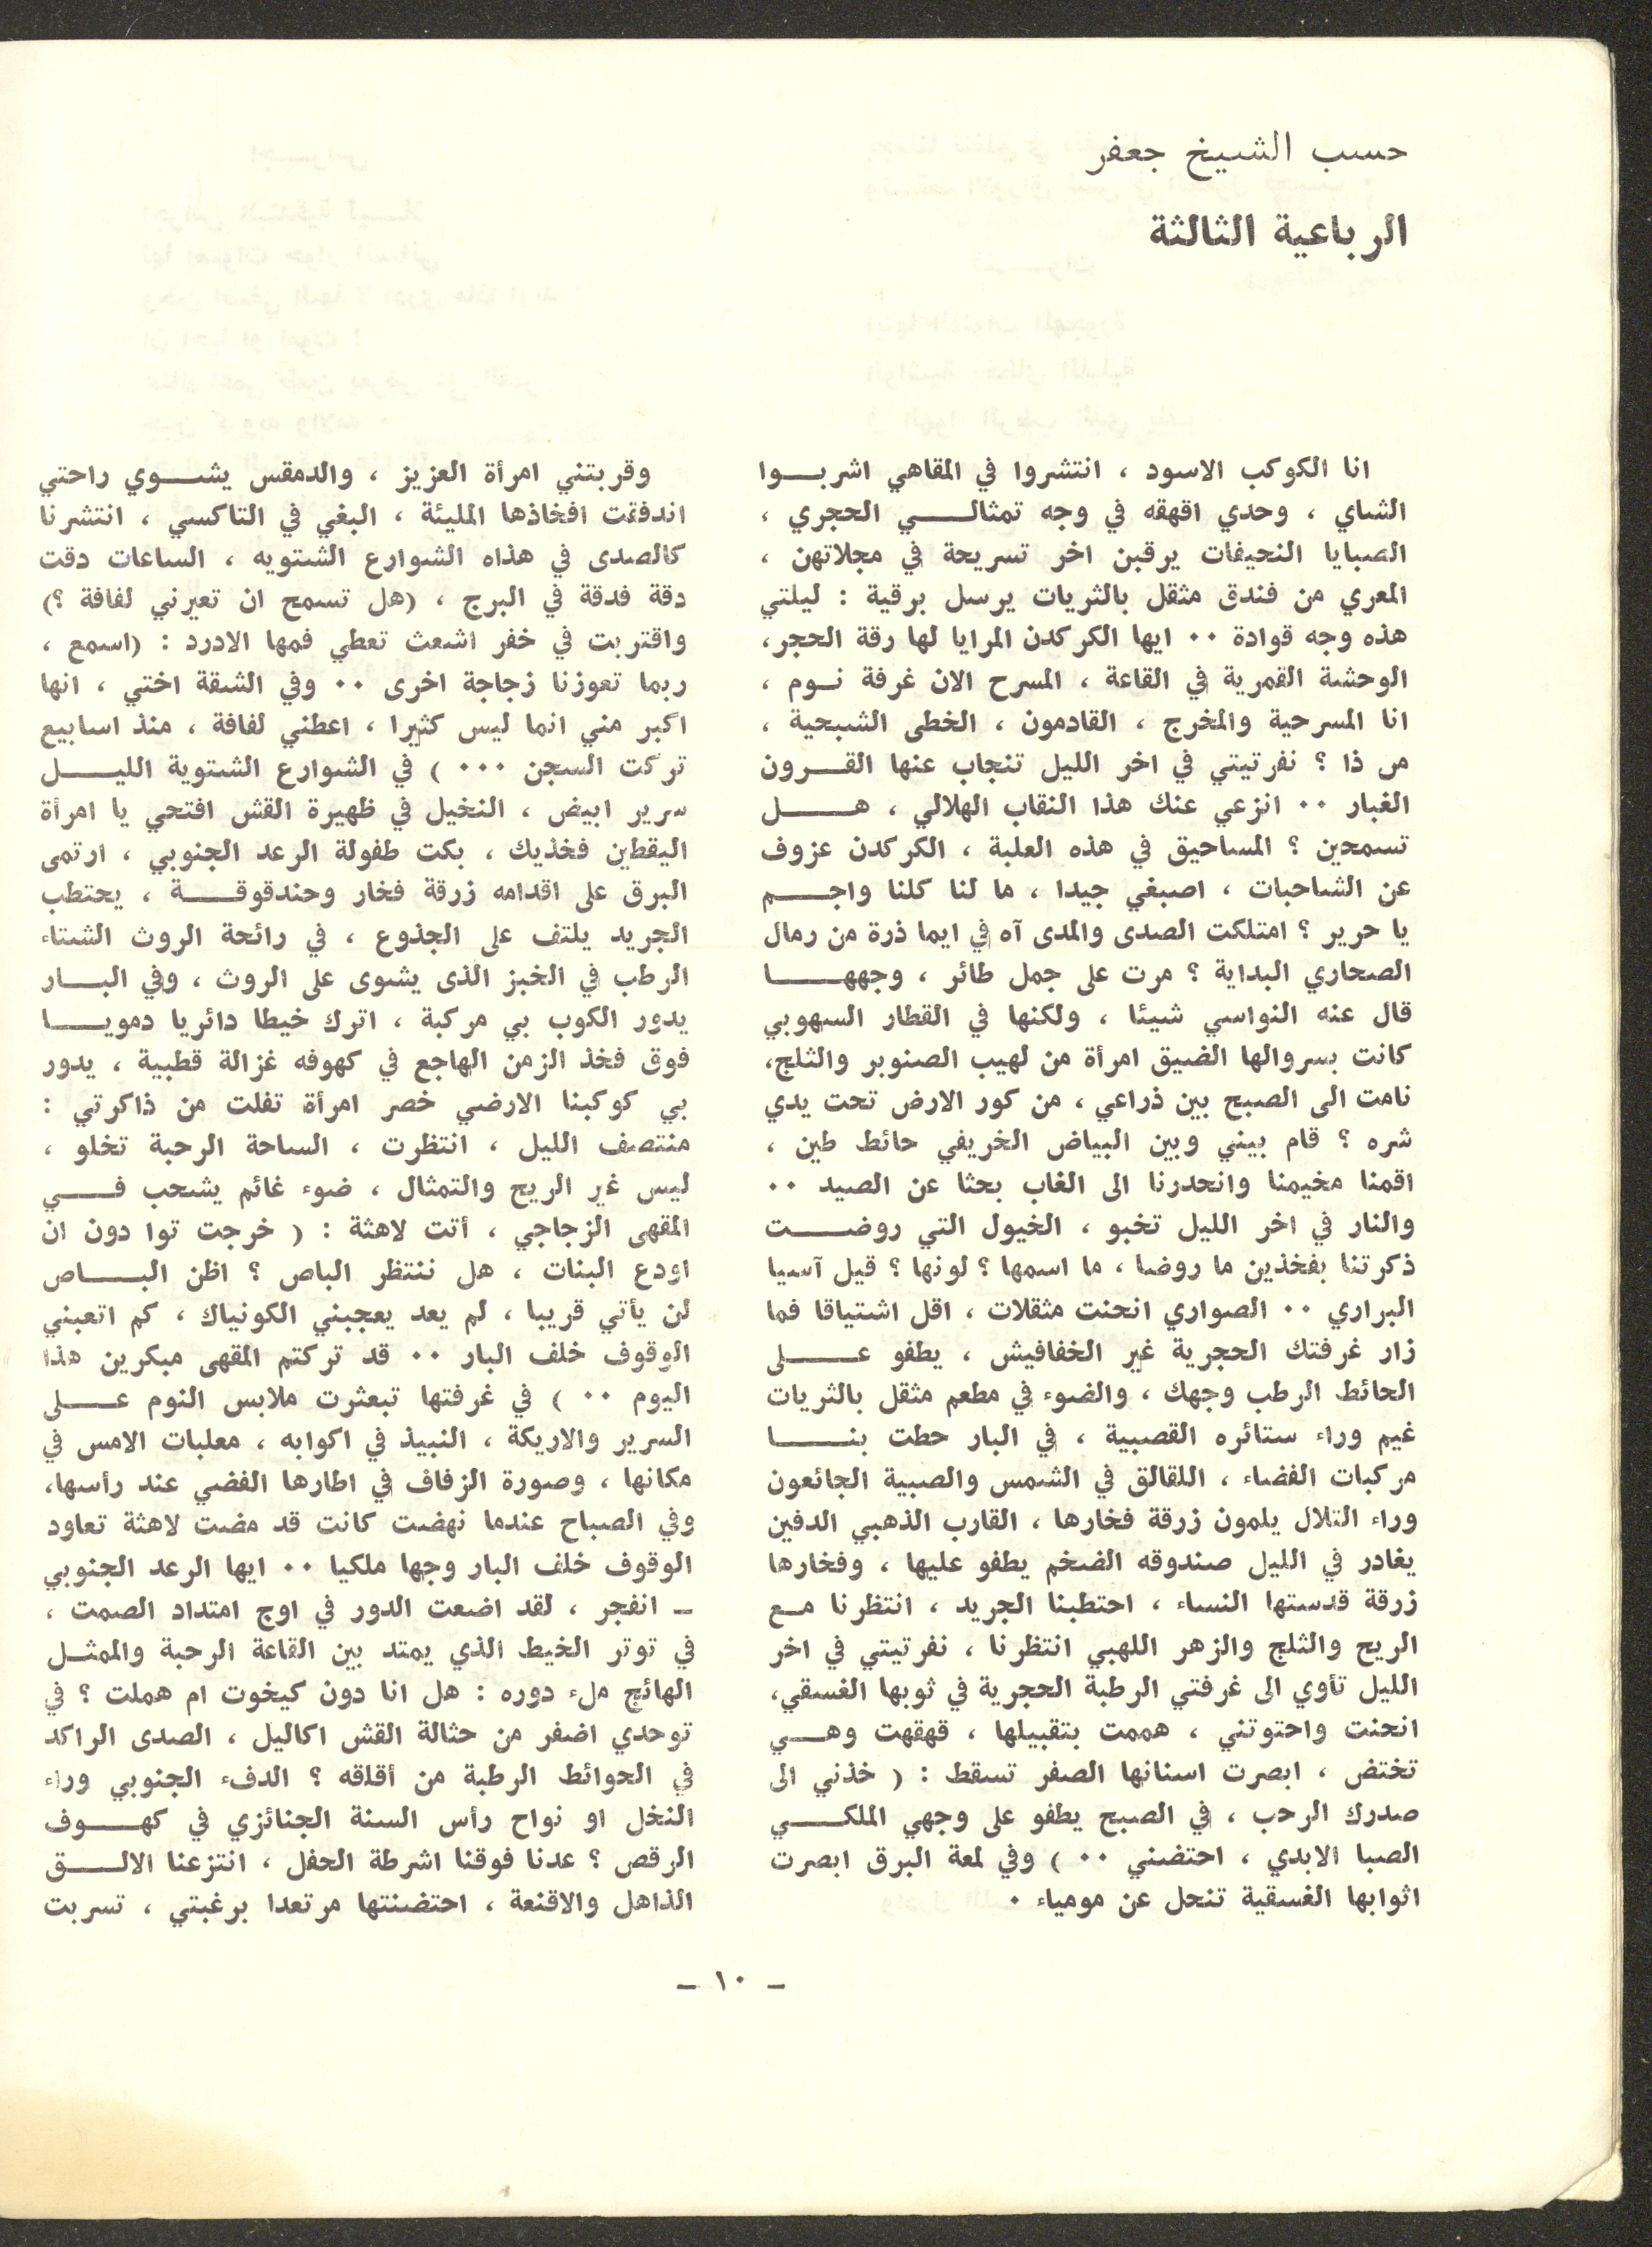 حسب الشيخ جعفر
الرباعية الثالثة
انا الكوكب الاسود ، انتشروا في المقاهي اشربوا
الشاي ، وحدي اقهقه في وجه تمثالي الحجري ،
الصبايا النحيفات يرقبن اخر تسريحة في مجلاتهن ،
المعري من فندق مثقل بالثريات يرسل برقية : ليلتي
هذه وجه قوادة ٠٠ ايها الكركدن المرايا لها رقة الحجر،
الوحشة القمرية في القاعة ، المسرح الان غرفة نوم ،
انا المسرحية والمخرج ، القادمون ، الخطى الشبحية ،
من ذا ؟ نفرتيتي في اخر الليل تنجاب عنها القرون
الغبار ٠٠ انزعي عنك هذا النقاب الهلالي ، هل
تسمحين ؟ المساحيق في هذه العلبة ، الكركدن عزوف
عن الشاحبات ، اصبغي جيدا ، ما لنا كلنا واجم
يا حرير ؟ امتلكت الصدى والمدى آه في ايما ذرة من رمال
الصحاري البداية ؟ مرت على جمل طائر ، وجهها
قال عنه النواسي شيئا ، ولكنها في القطار السهوبي
كانت بسروالها الضيق امرأة من لهيب الصنوبر والثلج،
نامت الى الصبح بين ذراعي ، من كور الارض تحت يدي
شره ؟ قام بيني وبين البياض الخريفي حائط طين ،
اقمنا مخيمنا وانحدرنا الى الغاب بحثا عن الصيد ٠٠
والنار في اخر الليل تخبو ، الخيول التي روضت
ذكرتنا بفخذين ما روضا ، ما اسمها ؟ لونها ؟ قيل آسيا
البراري ٠٠ الصواري انحنت مثقلات ، اقل اشتياقا فما
زار غرفتك الحجرية غير الخفافيش ، يطفو على
الحائط الرطب وجهك ، والضوء في مطعم مثقل بالثريات
غيم وراء ستائره القصبية ، في البار حطت بنا
مركبات الفضاء ، اللقالق في الشمس والصبية الجائعون
وراء التلال يلمون زرقة فخارها ، القارب الذهبي الدفين
يغادر في الليل صندوقه الضخم يطفو عليها ، وفخارها
زرقة قدستها النساء ، احتطبنا الجريد ، انتظرنا مع
الريح والثلج والزهر اللهبي انتظرنا ، نفرتيتي في اخر
الليل تأوي الى غرفتي الرطبة الحجرية في ثوبها الغسقي،
انحنت واحتوتني ، هممت بتقبيلها ، قهقهت وهي
تختض ، ابصرت اسنانها الصفر تسقط : ( خذني الى
صدرك الرحب ، في الصبح يطفو على وجهي الملكي
الصبا الابدي ، احتضني ٠٠ ) وفي لمعة البرق ابصرت
اثوابها الغسقية تنحل عن مومياء ٠
وقربتني امرأة العزيز ، والدمقس يشوي راحتي
اندفقت افخاذها المليئة ، البغي في التاكسي ، انتشرنا
كالصدى في هذاه الشوارع الشتويه ، الساعات دقت
دقة فدقة في البرج ، (هل تسمح ان تعيرني لفافة ؟)
واقتربت في خفر اشعث تعطي فمها الادرد : (اسمع ،
ربما تعوزنا زجاجة اخرى ٠٠ وفي الشقة اختي ، انها
اكبر مني انما ليس كثيرا ، اعطني لفافة ، منذ اسابيع
تركت السجن ٠٠٠ ) في الشوارع الشتوية الليل
سرير ابيض ، النخيل في ظهيرة القش افتحي يا امرأة
اليقطين فخذيك ، بكت طفولة الرعد الجنوبي ، ارتمى
البرق على اقدامه زرقة فخار وحندقوقة ، يحتطب
الجريد يلتف على الجذوع ، في رائحة الروث الشتاء
الرطب في الخبز الذى يشوى على الروث ، وفي البار
يدور الكوب بي مركبة ، اترك خيطا دائريا دمويا
فوق فخذ الزمن الهاجع في كهوفه غزالة قطبية ، يدور
بي كوكبنا الارضي خصر امرأة تفلت من ذاكرتي :
منتصف الليل ، انتظرت ، الساحة الرحبة تخلو ،
ليس غير الريح والتمثال ، ضوء غائم يشحب في
المقهى الزجاجي ، أتت لاهثة : ( خرجت توا دون ان
اودع البنات ، هل ننتظر الباص ؟ اظن الباص
لن يأتي قريبا ، لم يعد يعجبني الكونياك ، كم اتعبني
الوقوف خلف البار ٠٠ قد تركتم المقهى مبكرين هذا
اليوم ٠٠ ) في غرفتها تبعثرت ملابس النوم على
السرير والاريكة ، النبيذ في اكوابه ، معلبات الامس في
مكانها ، وصورة الزفاف في اطارها الفضي عند رأسها،
وفي الصباح عندما نهضت كانت قد مضت لاهثة تعاود
الوقوف خلف البار وجها ملكيا ٠٠ ايها الرعد الجنوبي
– انفجر ، لقد اضعت الدور في اوج امتداد الصمت ،
في توتر الخيط الذي يمتد بين القاعة الرحبة والممثل
الهائج ملء دوره : هل انا دون كيخوت ام هملت ؟ في
توحدي اضفر من حثالة القش اكاليل ، الصدى الراكد
في الحوائط الرطبة من أقلقه ؟ الدفء الجنوبي وراء
النخل او نواح رأس السنة الجنائزي في كهوف
الرقص ؟ عدنا فوقنا اشرطة الحفل ، انتزعنا الالق
الذاهل والاقنعة ، احتضنتها مرتعدا برغبتي ، تسربت
– ١٠ –